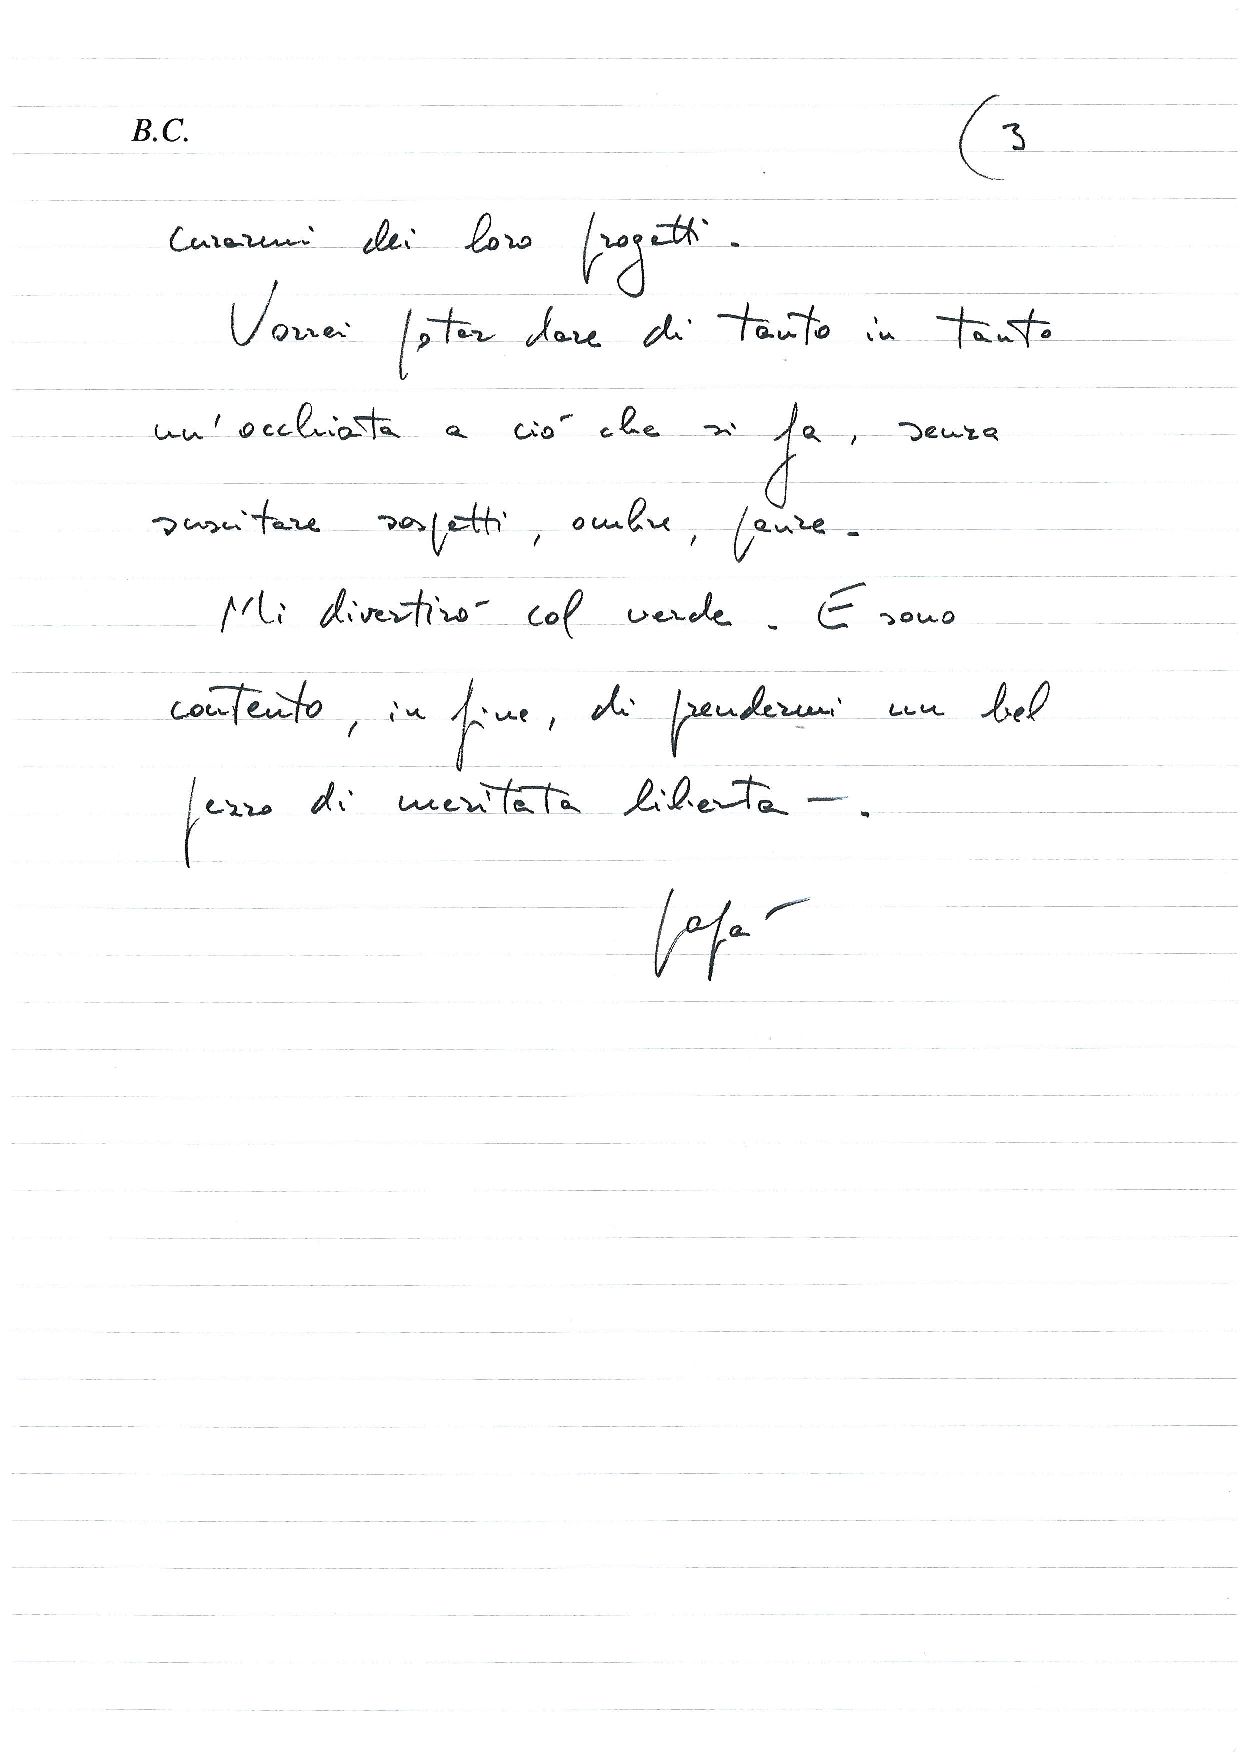 B.C. (3
curarmi dei loro progetti.
Vorrei poter dare di tanto in tanto
un'occhiata a ciò che si fa, senza
suscitare sospetti, ombre, paure.
Mi divertirò col verde. E sono
contento, in fine, di prendermi un bel
pezzo di meritata libertà.
papà